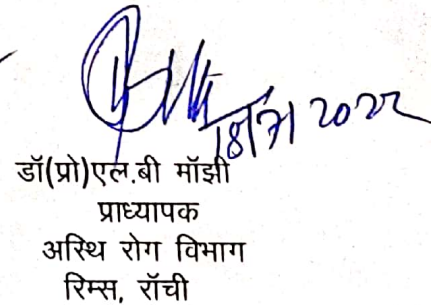 18/7/2022
डॉ(प्रो)एल.बी मॉझी
प्राध्यापक
अस्थि रोग विभाग
रिम्स, रॉची